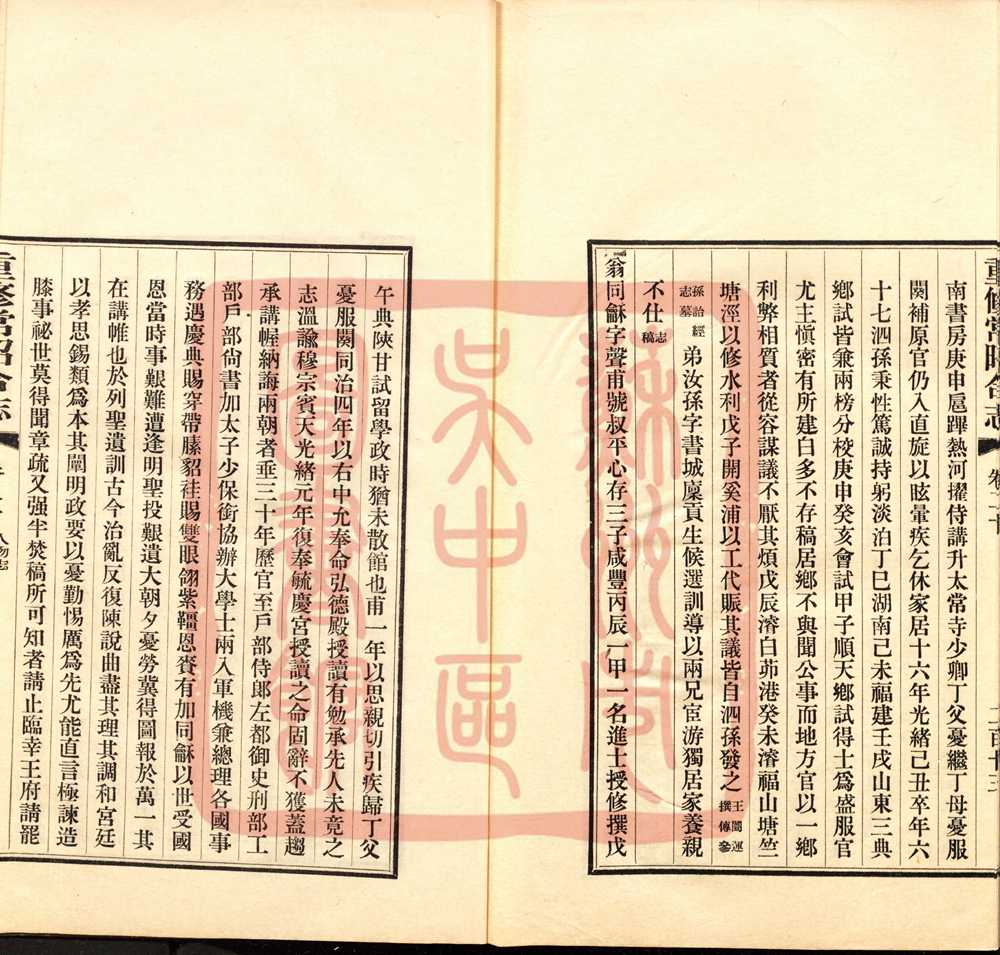 南書房庚申扈蹕熱河擢侍講升太常寺少卿丁父憂繼丁母憂服
闋補原官仍入直旋以眩暈疾乞休家居十六年光緒己丑卒年六
十七泗孫秉性篤誠持躬淡泊丁巳湖南己未福建壬戌山東三典
鄉試皆兼兩榜分校庚申癸亥會試甲子順天鄉試得士爲盛服官
尤主愼密有所建白多不存稿居鄉不與聞公事而地方官以一鄉
利弊相質者從容謀議不厭其煩戊辰濬白茆港癸未濬福山塘竺
塘涇以修水利戊子開奚浦以工代賑其議皆自泗孫發之王闓運撰傳參
孫詒經志墓弟汝孫字書城廩貢生候選訓導以兩兄宦游獨居家養親
不仕志稿
翁同龢字聲甫號叔平心存三子咸豐丙辰一甲一名進士授修撰戊
午典陝甘試留學政時猶未散館也甫一年以思親切引疾歸丁父
憂服闋同治四年以右中允奉命弘德殿授讀有勉承先人未竟之
志溫諭穆宗賓天光緒元年復奉毓慶宮授讀之命固辭不獲蓋趨
承講幄納誨兩朝者垂三十年歷官至戶部侍郎左都御史刑部工
部戶部尙書加太子少保銜協辦大學士兩入軍機兼總理各國事
務遇慶典賜穿帶膆貂褂賜雙眼翎紫韁恩賚有加同龢以世受國
恩當時事艱難遭逢明聖投艱遺大朝夕憂勞冀得圖報於萬一其
在講帷也於列聖遺訓古今治亂反復陳說曲盡其理其調和宮廷
以孝思錫類爲本其闡明政要以憂勤惕厲爲先尤能直言極諫造
膝事祕世莫得聞章疏又强半焚稿所可知者請止臨幸王府請罷
重修常昭合志